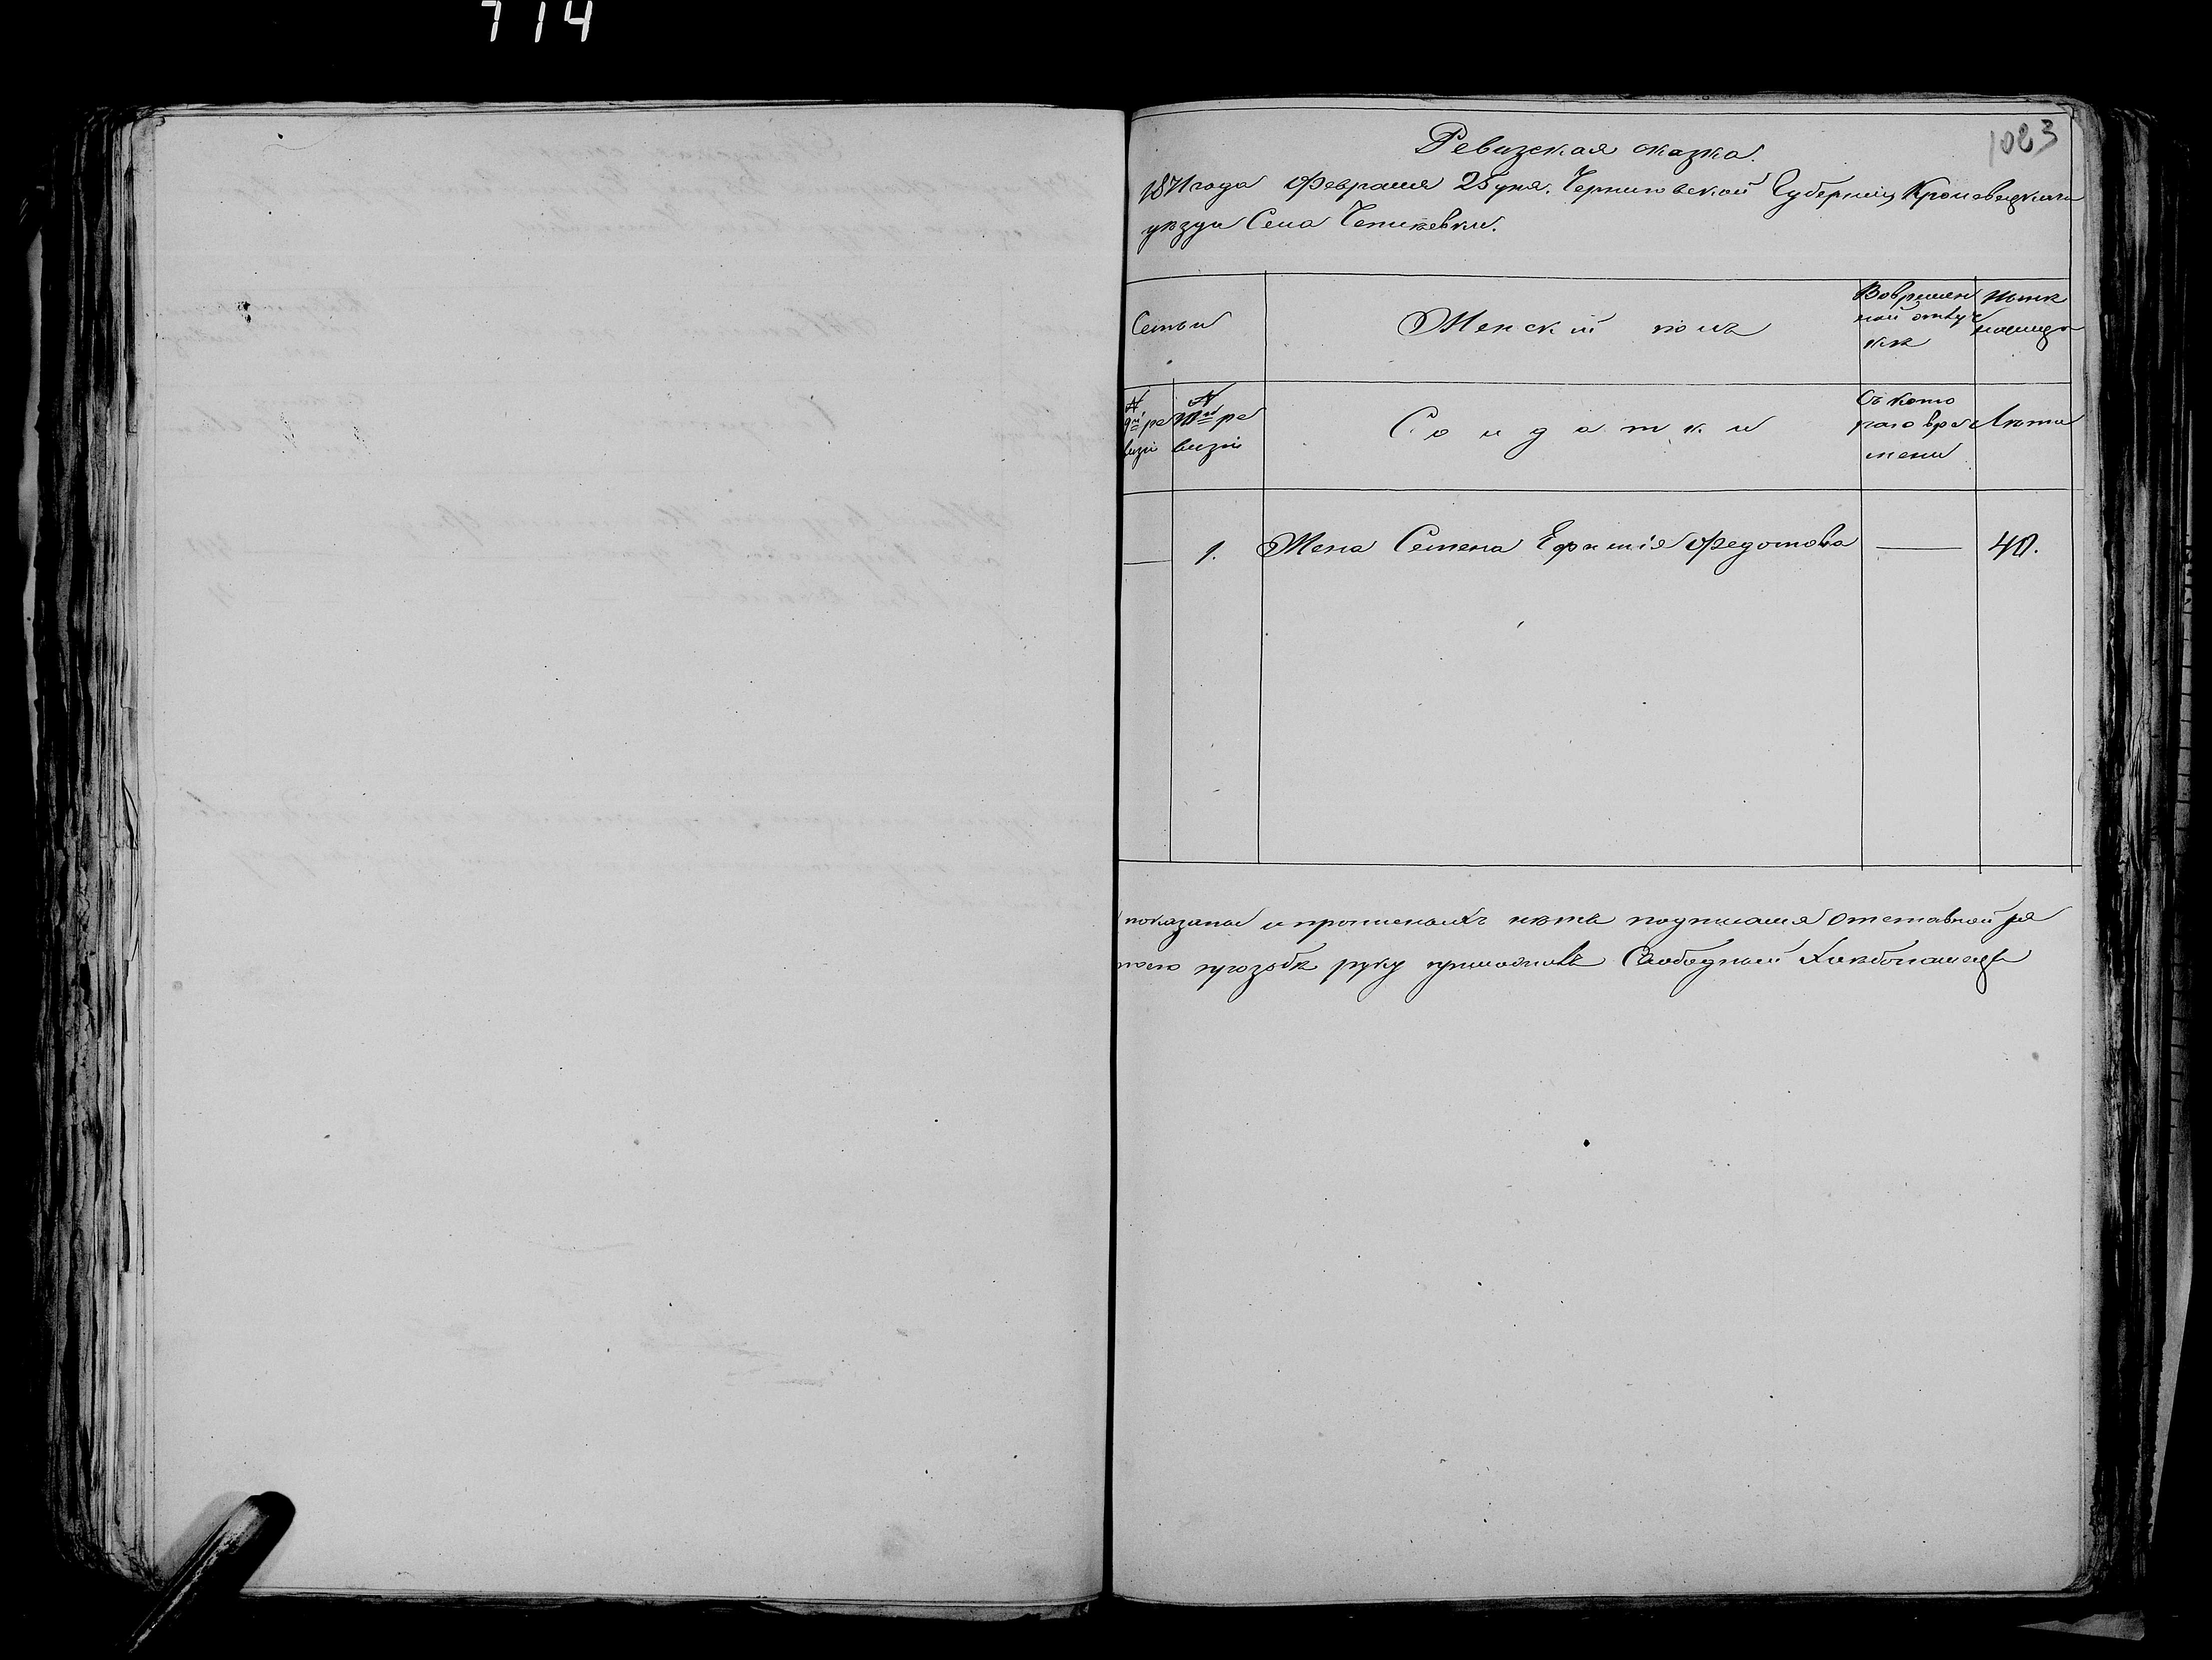 714
1023
Ревизская сказка.
1871 года Февраля 25 дня. Черниговской Губерніи Кролевецкаго
уезда Села Чепиевки.
Семьи
Женскій полъ
Вовремен
ной отлуч
ке
№
ре
визіи
№
ре
визіи
Солдатки
Съ кото
раго вре
мени
Лета
1. Жена Семена Ефимія Федотова — 40.
показаны и прописныхъ нетъ подписалъ отставной ря
прозьбе руку приложилъ Свободный Хлебопашецъ